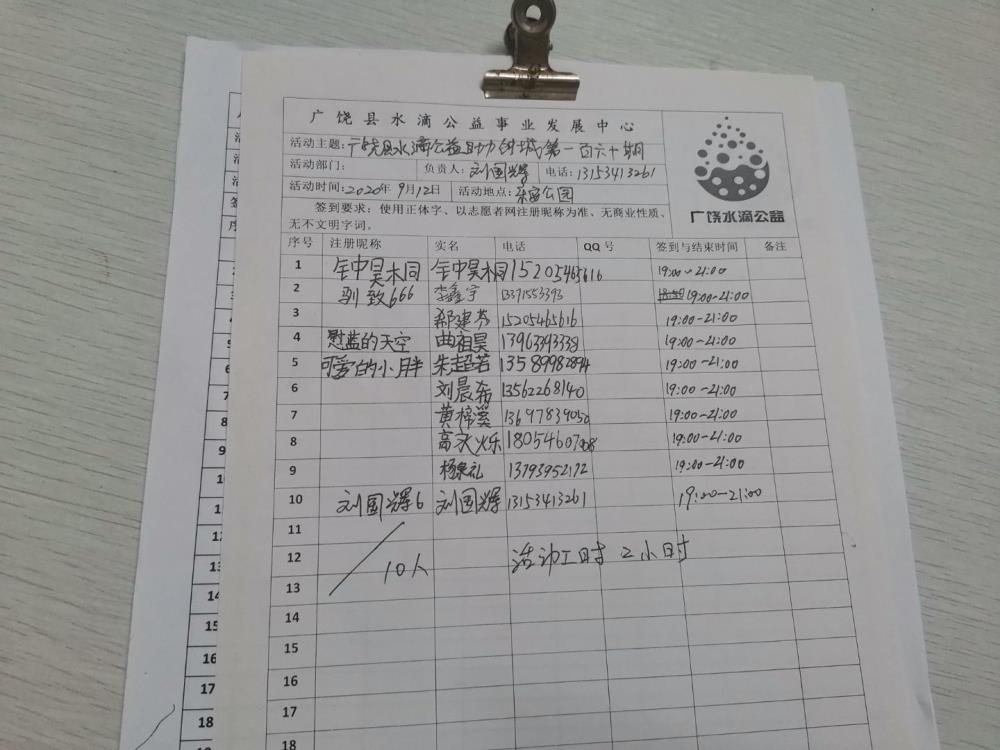 广饶县水滴公益事业发展中心
活动主题:广饶县水滴公益助力创城第一百六十期
活动部门: 负责人:刘国辉 电话:13153413261
活动时间:2020年9月12日 活动地点:乐安公园
签到要求:使用正体字、以志愿者网注册昵称为准、无商业性质、
无不文明字词。
广饶水滴公益
序号 注册昵称 实名 电话 QQ号 签到与结束时间 备注
1 钟昊桐 钟昊桐 15205465616 19:00-21:00
2 驯致666 李鑫宇 13371553393 19:00-21:00
3 郗建芬 15205465616 19:00-21:00
4 慰蓝的天空 曲祖昊 13963393338 19:00-21:00
5 可爱的小胖 朱起若 13589982894 19:00-21:00
6 刘晨希 13562268140 19:00-21:00
7 黄梓溪 13697839050 19:00-21:00
8 高永烁 18054607908 19:00-21:00
9 13793952172 19:00-21:00
10 刘国辉6 刘国辉 13153413261 19:00-21:00
11
12 10人 活动工时 2小时
13
14
15
16
17
18
14
15
16
17
18